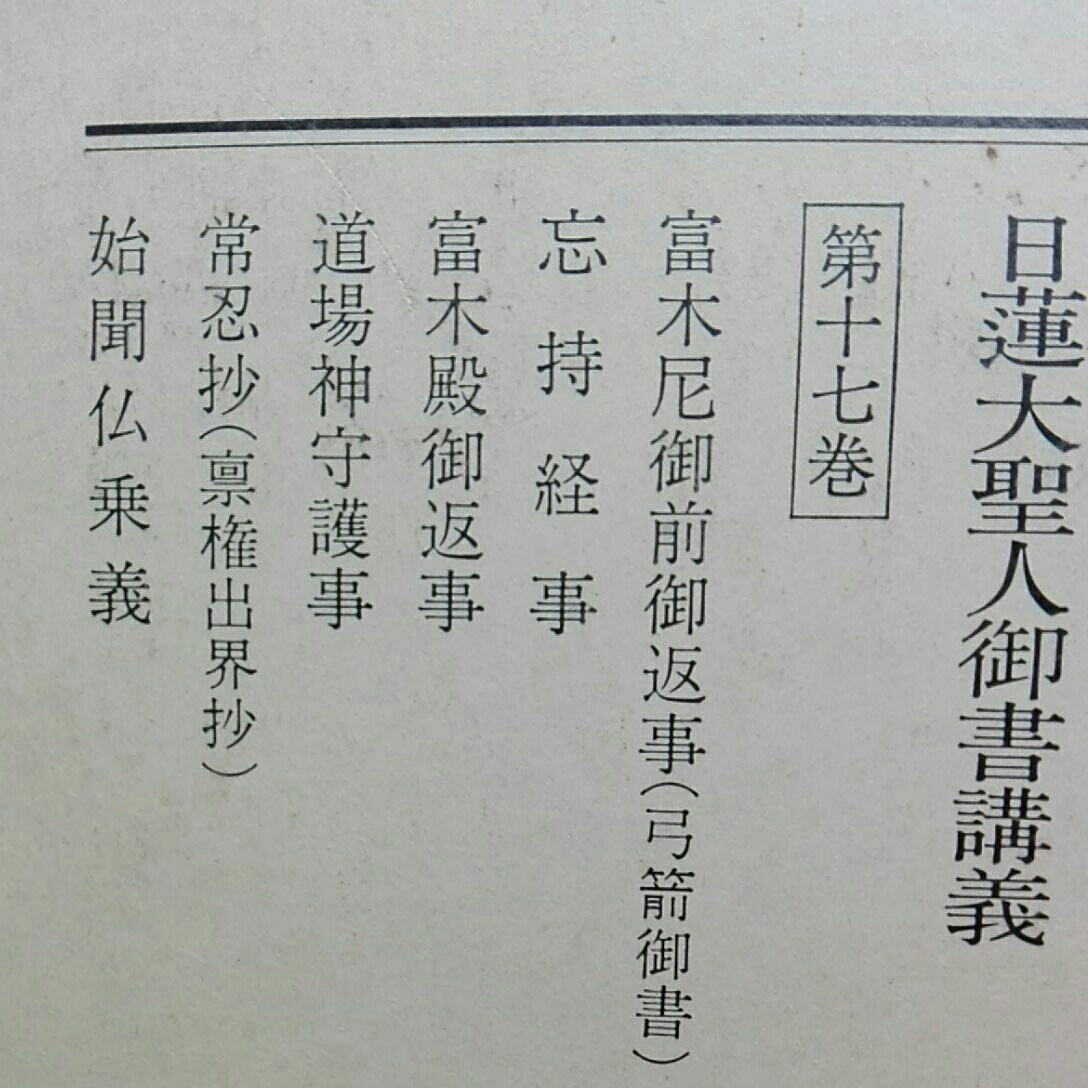 日蓮大聖人御書講義
第十七巻
富木尼御前御返事(弓箭御書)
忘持経事
富木殿御返事
道場神守護事
常忍抄(禀権出界抄)
始聞仏乗義